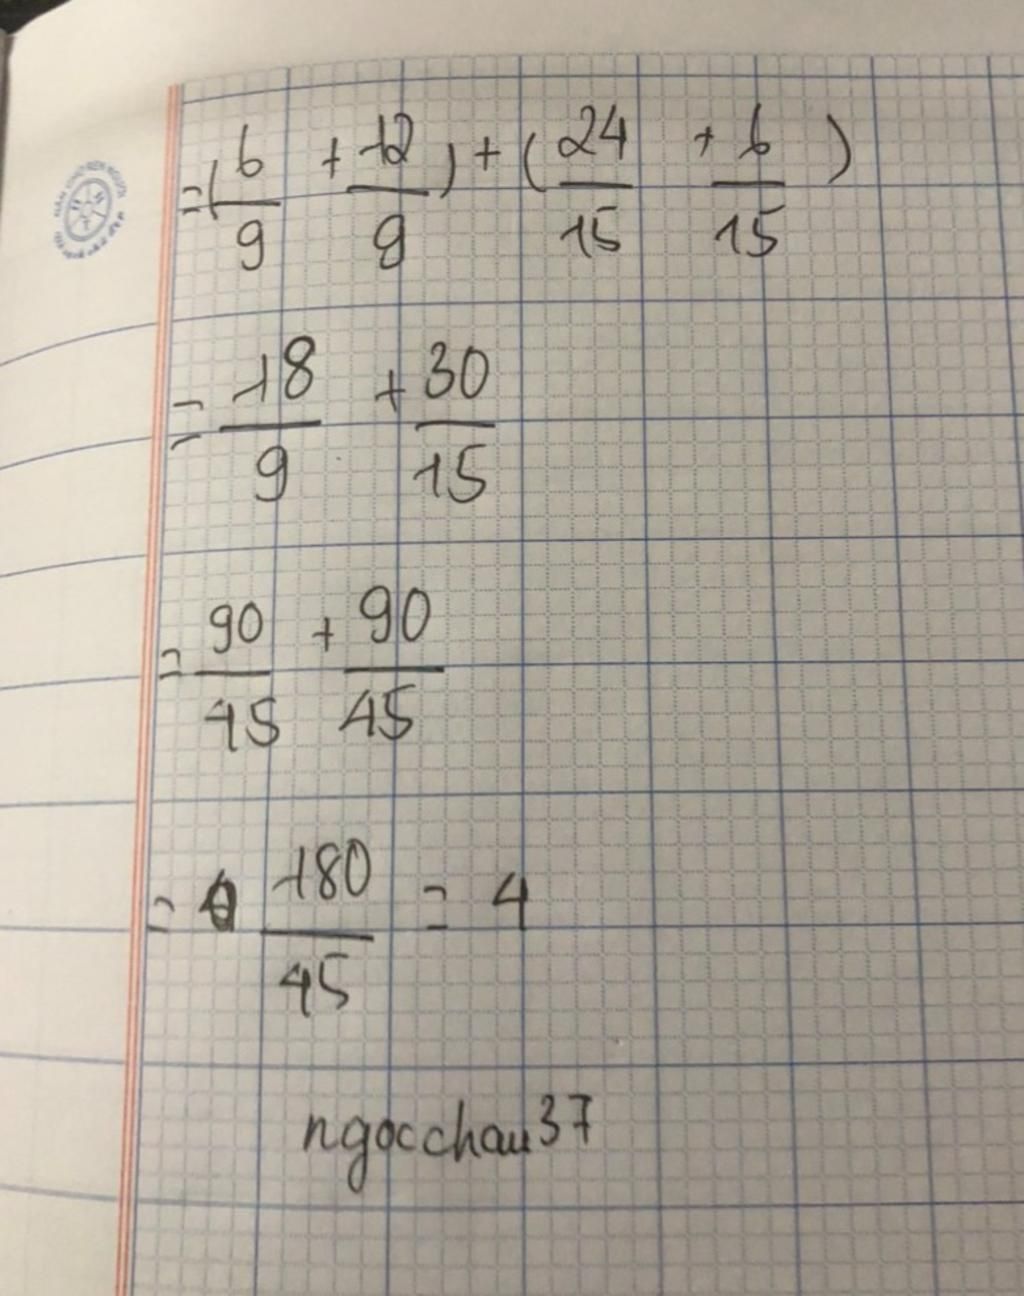 =(6/9 + 12/9) + (24/15 + 6/15)
= 18/9 + 30/15
= 90/45 + 90/45
= 180/45 = 4
ngocchau37